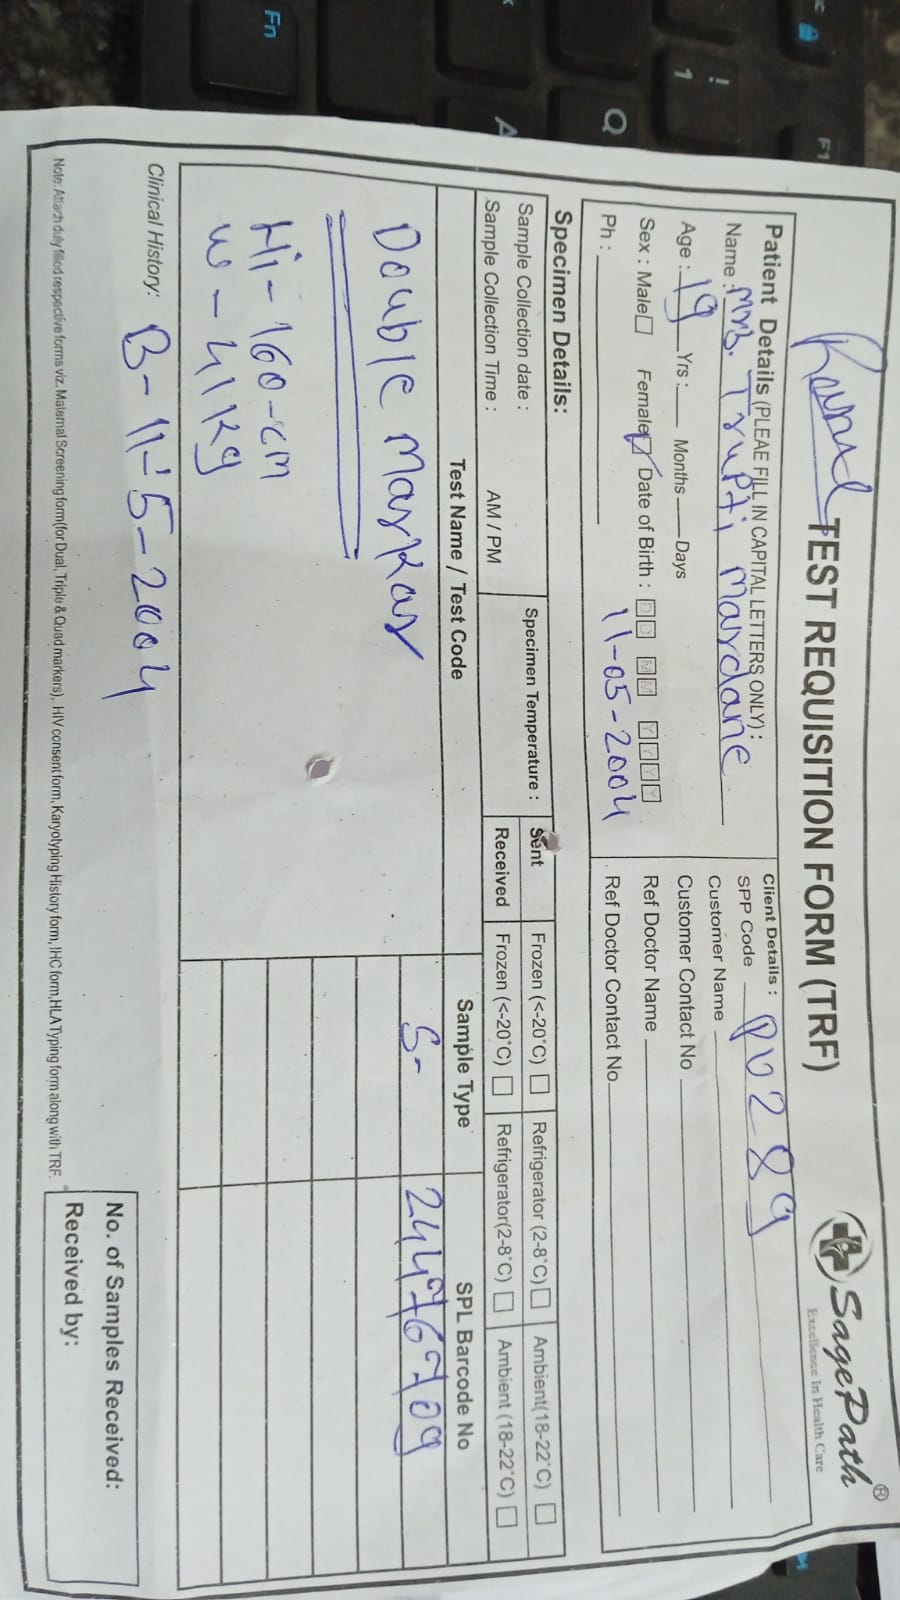 SagePath®
Excellence In Health Care
TEST REQUISITION FORM (TRF)
Patient Details (PLEAE FILL IN CAPITAL LETTERS ONLY) :
Name : Mrs. Trupti Mardane
Age : 19 Yrs : Months Days
Sex : Male Female Date of Birth : DD MM YYYY
11-05-2004
Ph :
Client Details :
SPP Code PU289
Customer Name
Customer Contact No
Ref Doctor Name
Ref Doctor Contact No
Specimen Details:
Sample Collection date :
Sample Collection Time : AM / PM
Specimen Temperature :
Sent Frozen (<-20°C) Refrigerator (2-8°C) Ambient(18-22°C)
Received Frozen (<-20°C) Refrigerator(2-8°C) Ambient (18-22°C)
Test Name / Test Code Sample Type SPL Barcode No
Double Markar S- 24476709
Hi- 160-cm
w - 41 kg
Clinical History: B- 11-5-2004
No. of Samples Received:
Received by:
Note: Attach duly filled respective forms viz. Maternal Screening form(for Dual, Triple & Quad markers), HIV consent form, Karyotyping History form, IHC form, HLA Typing form along with TRF.
Fn
Q
A
!
1
F1